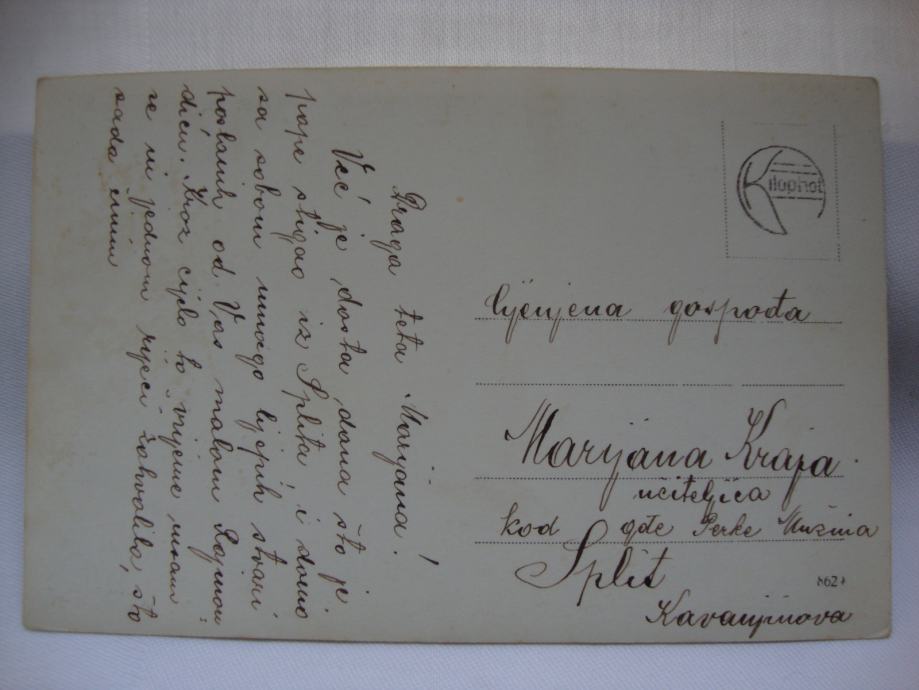 Draga teta Marijana!
Već je dosta dana što je
pape stigao iz Splita i donio
sa sobom mnogo lijepih stvari
poslanih od Vas malom Rajmon:
diću. Kroz cijelo to vrijeme nisam
se ni jednom riječi zahvalila, što
sada činim
Kilophot
Cijenjena gospođa
Marijana Kraja
učiteljica
kod gđe Perke Mužina
Split
Kavanjinova